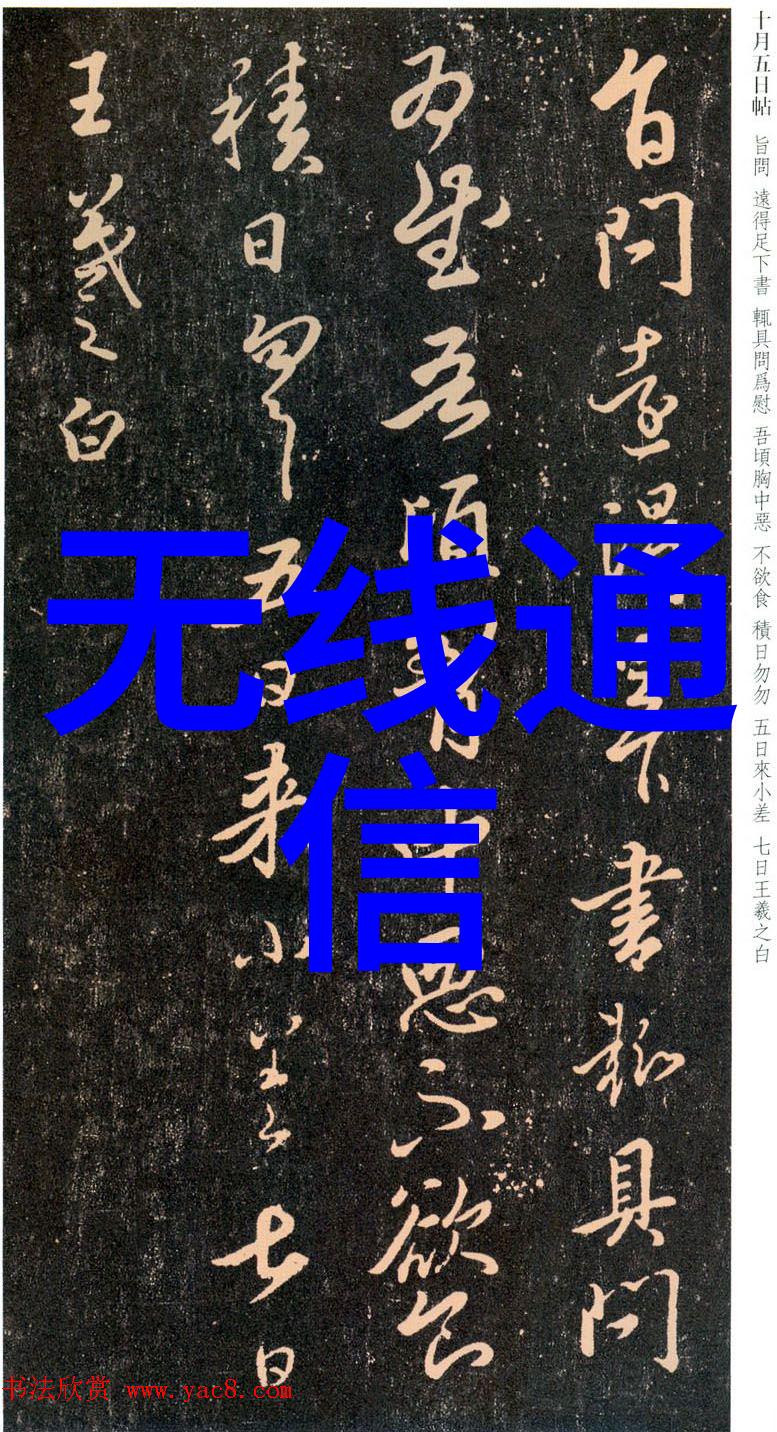 十月五日帖 旨問 遠得足下書 輒具問爲慰 吾頃胸中惡 不欲食 積日勿勿 五日來小差 七日王羲之白
旨問遠得足下書輒具問
爲慰吾頃胸中惡不欲食
積日勿勿五日来小差七日
王羲之白
无线通
信
书法欣赏 www.yac8.com